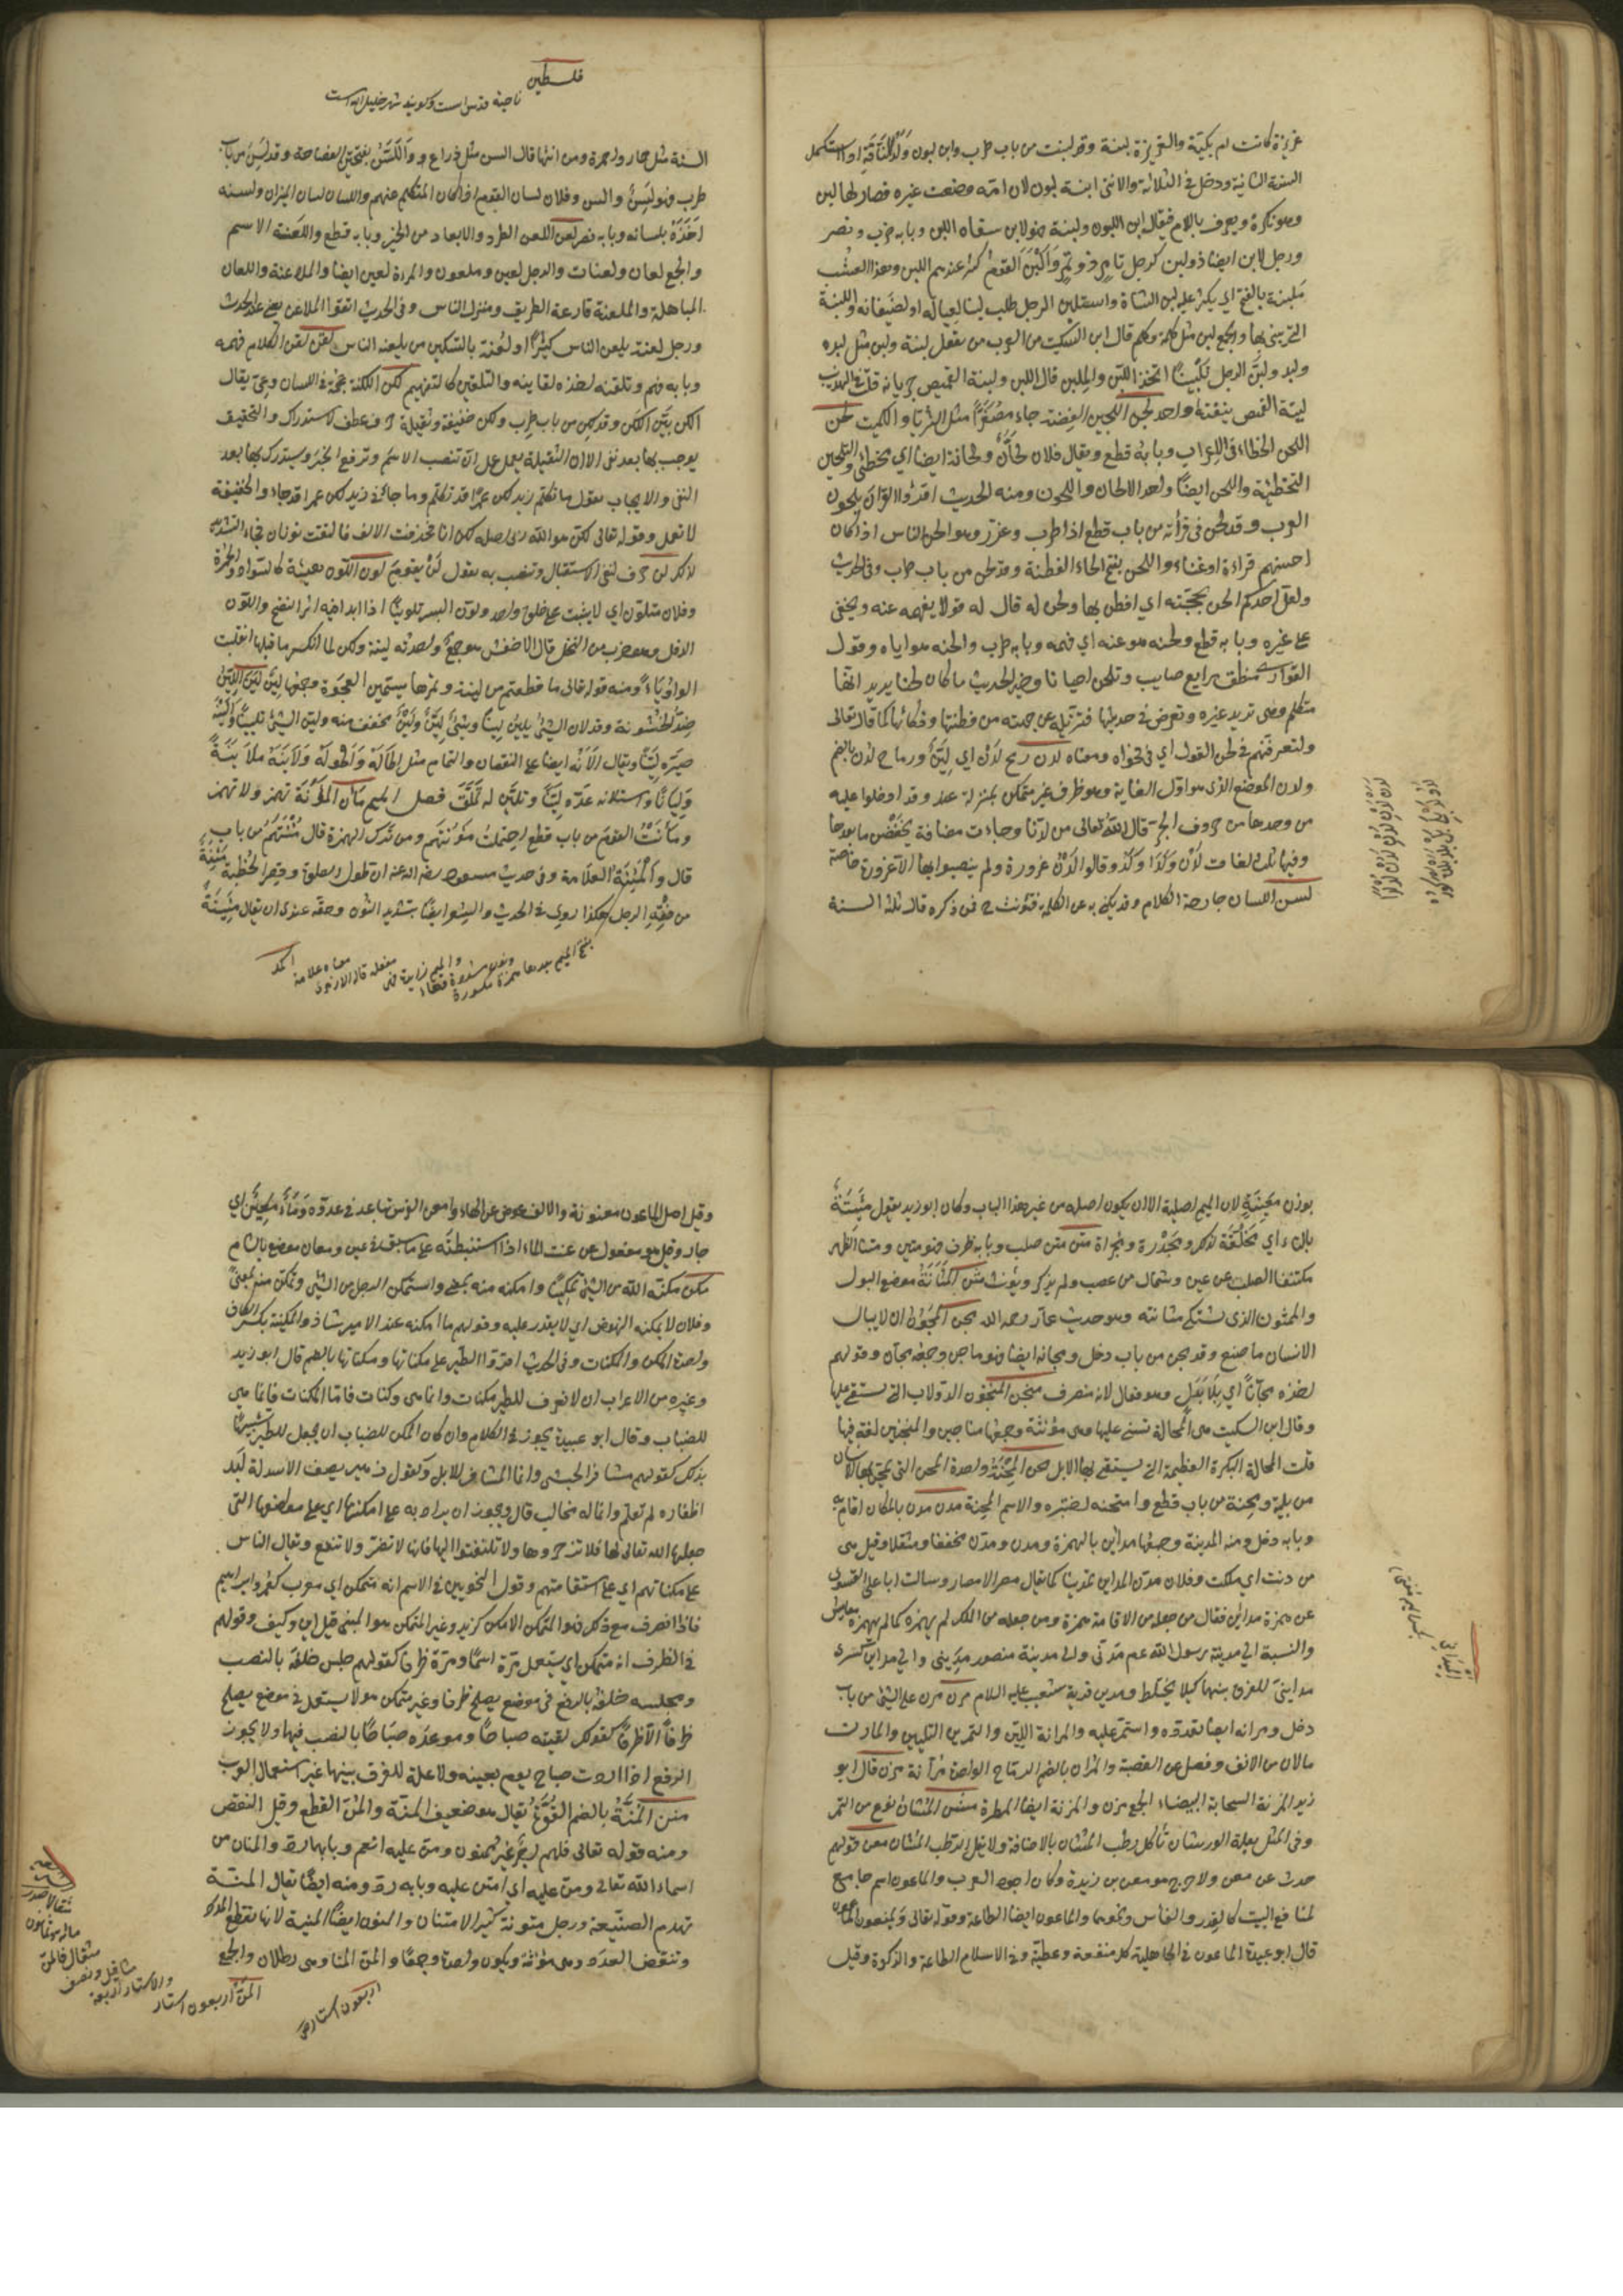 غزيرة كانت ام بكيّة والغزيرة لبنة وقد لبنت من باب طرب وابن لبون ولد الناقة اذا استكمل
السنة الثانية ودخل في الثالثة والانثى ابنة لبون لان امّه وضعت غيره فصار لها لبن
وهو نكرة ويعرف باللام فيقال ابن اللبون ولبنة فهو لابن سقاه اللبن وبابه ضرب ونصر
ورجل لابن ايضا ذو لبن كرجل تامر ذو تمر وَاَلْبَنَ القوم كثر عندهم اللبن وهذا العشب
مَلبنة بالفتح اي يكثر عليه لبن الشاة واستلبن الرجل طلب لبنا لعياله او لضيفانه واللبنة
التي يبنى بها والجمع لبن مثل كلمة وكلم قال ابن السكيت من العرب من يقول لبنة ولبن مثل لبدة
ولبد ولبَّن الرجل تلبينًا اتخذ اللبن والملبن قالب اللبن ولبنة القميص جربانه قلت في التهذيب
لبنة القميص بنيقته واحد لجن اللجين الفضة جاء مصغّرًا مثل الثريا والكميت لحن
اللحن الخطاء في الاعراب وبابه قطع ويقال فلان لحّانٌ ولحانة ايضا اي يخطئ والتلحين
التخطئة واللحن ايضًا واحد الالحان واللحون ومنه الحديث اقرؤا القرآن بلحون
العرب وقد لحن في قرأته من باب قطع اذا طرب وغرّد وهو الحن الناس اذا كان
احسنهم قراءة او غناءً واللحن بفتح الحاء الفطنة وقد لحن من باب طرب وفي الحديث
ولعلّ احدكم الحن بحجّته اي افطن بها ولحن له قال له قولا يفهمه عنه ويخفى
على غيره وبابه قطع ولحنه هو عنه اي فهمه وبابه طرب والحنه هو اياه وقول
القزارى منطق رايع صايب وتلحن احيانا وخير الحديث ما كان لحنا يريد انها
متكلم وهي تريد غيره وتعرض في حديثها فتزيله عن جهته من فطنتها وذكائها كما قال تعالى
ولتعرفنّهم في لحن القول اي في فحواه ومعناه لدن رمح لَدْن اي لَيِّنٌ ورماح لُدن بالضم
ولدن الموضع الذي هو اوّل الغاية وهو ظرف غير متمكن بمنزلة عند وقد ادخلوا عليه
من وحدها من حروف الجرّ قال الله تعالى من لدنّا وجاءت مضافة يخفض ما بعدها
وفيها ثلث لغات لَدُنْ وَلَدَا وَلَدُ وقالوا لَدُنْ غدوة ولم ينصبوا بها الا غدوة خاصة
لسن اللسان جارحة الكلام وقد يكنى به عن الكلمة فتؤنث ح فمن ذكره قال ثلثة السنة
فلسطين
ناحية قدس است وكويند شهر خليل الله است
السنة مثل حمار واحمرة ومن انثها قال السن مثل ذراع واذرع وَاللَّسَنُ بفتحتين الفصاحة وقد لسِنَ من باب
طرب فهو لَسِنٌ والسن وفلان لسان القوم اذا كان المتكلم عنهم واللسان لسان الميزان ولسنه
اخذه بلسانه وبابه نصر لعن اللعن الطرد والابعاد من الخير وبابه قطع واللَّعنة الاسم
والجمع لعان ولعنات والرجل لعين وملعون والمرءة لعين ايضا والملاعنة واللعان
المباهلة والملعنة قارعة الطريق ومنزل الناس وفي الحديث اتقوا الملاعن يعني عند الحدث
ورجل لعنة يلعن الناس كثيرًا ولعْنة بالتسكين من يلعنه الناس لقن لقن الكلام فهمه
وبابه فهم وتلقنه اخذه لقاينه والتلقين كالتفهيم لكن اللكنة عجمة في اللسان وعيّ يقال
الكن بيّن اللكن وقد لكن من باب طرب ولكن خفيفة وثقيلة حرف عطف للاستدراك والتحقيق
يوجب بها بعد نفي الا ان الثقيلة يعمل عمل انّ تنصب الاسم وترفع الخبر ويستدرك بها بعد
النفي والايجاب تقول ما تكلّم زيد لكن عمرًا قد تكلّم وما جائني زيد لكن عمرا قد جاء والخفيفة
لا تعمل وقوله تعالى لكنّ هو الله ربى اصله لكن انا فحذفت الالف فالتقت نونان فجاء التشديد
لذلك لن حرف لنفي الاستقبال وتنصب به تقول لَنْ يقومَ لون اللون هيئة كالسواد والحمرة
وفلان متلوّن اي لا يثبت على خلق واحد ولوّن البسر تلوينًا اذا ابدا فيه اثر النضج واللون
الدقل وهو ضرب من النخل قال الاخفش هو جمعٌ واحدته لينة ولكن لما انكسر ما قبلها انقلبت
الواو ياءً ومنه قوله تعالى ما قطعتم من لينة وتمرها يسمّى العجوة وجمعها لينٌ لين اللين
ضدّ الخشونة وقد لان الشيئ يلين لِينًا وشيئ لَيّنٌ وَلَيْنٌ مخفف منه وليّن الشيئ تليينًا وَاَلْيَنَهُ
صيّره ليّنًا ويقال اَلَانَهُ ايضا على النقصان والتمام مثل اَطَالَهُ وَاَطْوَلَهُ وَلَايَنَهُ مُلَايَنَةً
وَلِيَانًا واستلانه عدّه لَيِّنًا وتليّن له تَمَلَّقَ فصل الميم مأن المؤنَة تهمز ولا تهمز
ومأَنْتُ القومَ من باب قطع احتملت مَؤُنَتهم ومن ترك الهمزة قال مُنْتُهُم من باب
قال وَالْمَئِنَّةُ العلامة وفي حديث مسعود رضه الله عنه ان طول الصلوة وقصر الخطبة مَئِنَّةٌ
من فقه الرجل هكذا روي في الحديث والشعر ايضًا بتشديد النون وحقه عندي ان يقال مَئِينَةٌ
بوزن مَعِينَةٍ لان الميم اصلية الا ان يكون اصله من غير هذا الباب وكان ابو زيد يقول مَئِتَّةٌ
بالتاء اي مَخْلَقَةٌ لذلك ومَجْدَرَة ومَحْراة متن متن صلب وبابه ظرف فهو متين ومتنا الظهر
مكتنفا الصلب عن يمين وشمال من عصب ولحم يذكر ويؤنث مثن اَلْمَثَانَةُ موضع البول
والممثون الذي يشتكي مثانته وهو حديث عمّار رحمه الله مجن اَلْمُجُونُ ان لا يبالي
الانسان ما صنع وقد مجن من باب دخل ومجانه ايضا فهو ماجن وجمعه مجّان وقولهم
اخذه مجّانًا اي بِلَا بَدَلٍ وهو فعّال لانه منصرف منجن المنجنون الدولاب التي يستقى عليها
وقال ابن السكيت هي المحالة تسنى عليها وهي مؤنثة وجمعها مناجين والمنجنين لغة فيها
قلت المحالة البكرة العظيمة التي يستقى بها الابل محن الْمِحْنَةُ واحدة المحن التي يمتحن بها الانسان
من بليّة ومحنه من باب قطع وامتحنه اختبره والاسم المحنة مدن مدن بالمكان اقام به
وبابه دخل ومنه المدينة وجمعها مدائن بالهمزة ومدن ومدّن مخففا ومثقلا وقيل هي
من دنت اي ملكت وفلان مدّن المداين تمدينا كما يقال مصر الامصار وسالت ابا علي الفسوى
عن همزة مدائن فقال من جعله من الاقامة همزة ومن جعله من الملك لم يهمزه كما لم يهمزه معايش
والنسبة الى مدينة رسول الله عم مَدَني والى مدينة منصور مَدِينى والى مداين كسرى
مداينىّ للفرق بينها كيلا يختلط ومدين قرية شعيب عليه السلام مرن مرن على الشيئ من باب
دخل ومرانه ايضا تعوّده واستمرّ عليه والمرانة اللِّين والتمرين التليين والمارن
مالان من الانف وفضل عن القصبة والمرّان بالضم الرماح الواحدة مرّانة مزن قال ابو
زيد المزنة السحابة البيضاء الجمع مزن والمزنة ايضا المطرة مشن المُشانُ نوع من التمر
وفي المثل بعلة الورشان تأكل رطب المُشان بالاضافة ولا تقل الرطب المُشان معن قولهم
حدث عن معن ولا حرج هو معن بن زيدة وكان اجود العرب والماعون اسم جامع
لمنافع البيت كالقدر والفأس ونحوهما والماعون ايضا الطاعة وقوله تعالى ويمنعون الماعون
قال ابو عبيدة الماعون في الجاهلية كل منفعة وعطيّة وفي الاسلام الطاعة والزكوة وقيل
وقيل اصل الماعون معونة والالف عوض عن الهاء وامعن الفرس تباعد في عدوه وَمَاءٌ مَعِينٌ اي
جار وقيل هو مفعول من عنت الماء اذا استنبطته على ما سبق في عين ومعان موضع بالشام
مكن مكّنه الله من الشيئ تمكينًا وامكنه منه بمعنى واستمكن الرجل من الشيئ وتمكّن منه بمعنىً
وفلان لا يمكنه النهوض اي لا يقدر عليه وقولهم ما امكنه عند الامير شاذ والمكنة بكسر الكاف
واحدة المكن والمكنات وفي الحديث اقرّوا الطير على مكناتها ومكناتها بالضم قال ابو زيد
وغيره من الاعراب ان لا نعرف للطير مكنات وانما هي وكنات فاما المكنات فانما هي
للضباب وقال ابو عبيد يجوز في الكلام وان كان المكن للضباب ان يجعل للطير تشبيهًا
بذلك كقولهم مشافر الحبشي وانما المشافر للابل وكقول زهير يصف الاسد له لبد
اظفاره لم تقلّم وانما له مخالب قال ويجوز ان يراد به على امكنتها اي على مواضعها التي
جعلها الله تعالى لها فلا تزجروها ولا تلتفتوا اليها فانها لا تضر ولا تنفع ويقال الناس
على مكناتهم اي على استقامتهم وقول النحويين في الاسم انه متمكن اي معرب كعمر وابراهيم
فاذا انصرف مع ذلك فهو المتمكن الامكن كزيد وغير المتمكن هو المبني مثل اين وكيف وقولهم
في الظرف انه متمكن اي يستعمل مرة اسمًا ومرّة ظرفا كقولهم جلس خلفَه بالنصب
ومجلسه خلفُه بالرفع في موضع يصلح ظرفا وغير متمكن هو لا يستعمل في موضع يصلح
ظرفًا الا ظرفًا كقولك لقيته صباحًا وموعده صباحًا بالنصب فيهما ولا يجوز
الرفع اذا اردت صباح يوم بعينه ولا علة للفرق بينهما غير استعمال العرب
منن اَلْمُنَّةُ بالضم القُوّةُ يقال هو ضعيف المنّة والمنّ القطع وقيل النقص
ومنه قوله تعالى فلهم اجرٌ غير ممنون ومنّ عليه انعم وبابهما ردّ والمنان من
اسماء الله تعالى ومنّ عليه اي امتن عليه وبابه ردّ ومنه ايضًا يقال المنّة
تهدم الصنيعة ورجل منونة كثير الامتنان والمنون ايضًا المنية لانها تقطع المدد
وتنقص العدد وهي مؤنثة ويكون واحدة وجمعًا والمنّ المنا وهي رطلان والجمع
المنّ اربعون استار
والاستار اربعة
مثاقيل ونصف